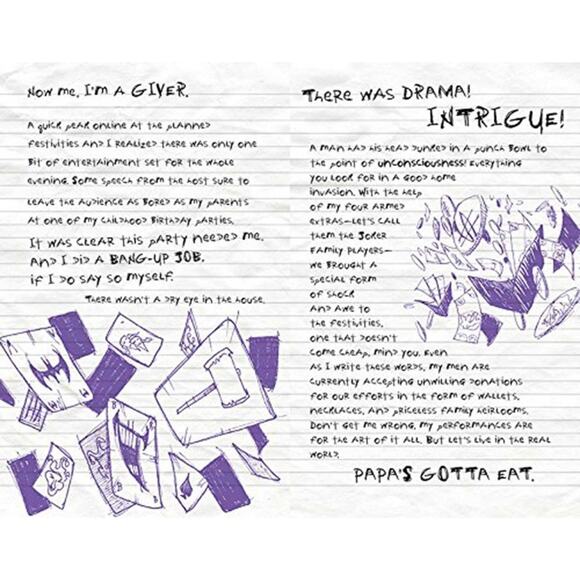 Now me, I'm a GIVER.
A quick peak online at the planned
festivities and I realized there was only one
bit of entertainment set for the whole
evening. Some speech from the host sure to
leave the audience as bored as my parents
at one of my childhood birthday parties.
It was clear this party needed me.
And I did a BANG-UP JOB,
if I do say so myself.
There wasn't a dry eye in the house.
There was DRAMA!
INTRIGUE!
A man had his head dunked in a punch bowl to
the point of unconsciousness! Everything
you look for in a good home
invasion. With the help
of my four armed
extras—let's call
them the Joker
Family Players—
we brought a
special form
of shock
and awe to
the festivities,
one that doesn't
come cheap, mind you. Even
as I write these words, my men are
currently accepting unwilling donations
for our efforts in the form of wallets,
necklaces, and priceless family heirlooms.
Don't get me wrong, my performances are
for the art of it all. But let's live in the real
world.
PAPA'S GOTTA EAT.